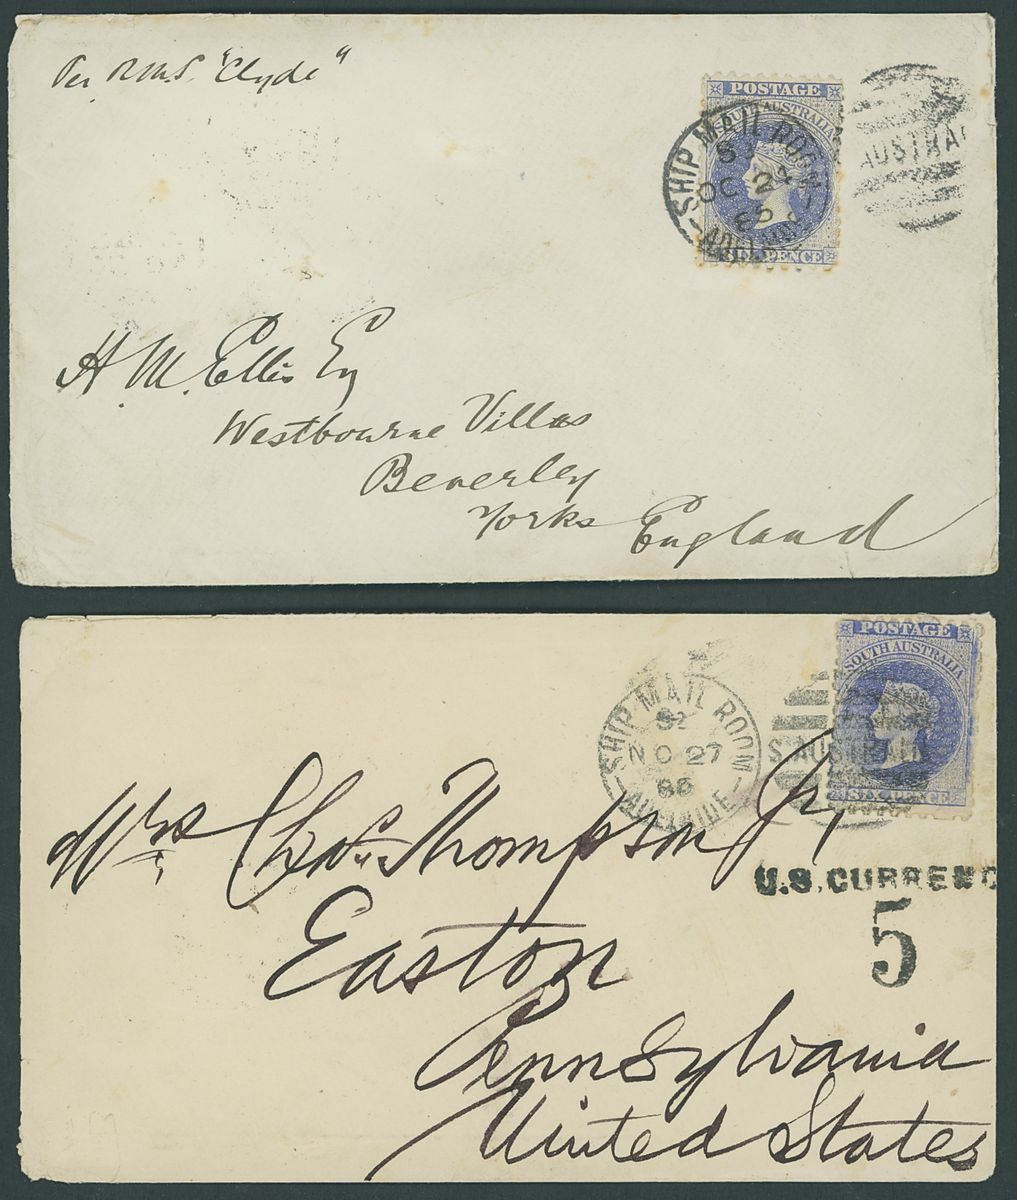 Per RMS "Clyde"
POSTAGE
SOUTH AUSTRALIA
SIX PENCE
SHIP MAIL ROOM
OC 24
ADELAIDE
AUSTRA
H. M. Ellis Esq
Westbourne Villas
Beverley
Yorks England
POSTAGE
SOUTH AUSTRALIA
SIX PENCE
SHIP MAIL ROOM
NO 27
86
ADELAIDE
S. AUSTRALIA
Mrs Chas. Thompson Jr,
U.S. CURRENC
5
Easton
Pennsylvania
United States